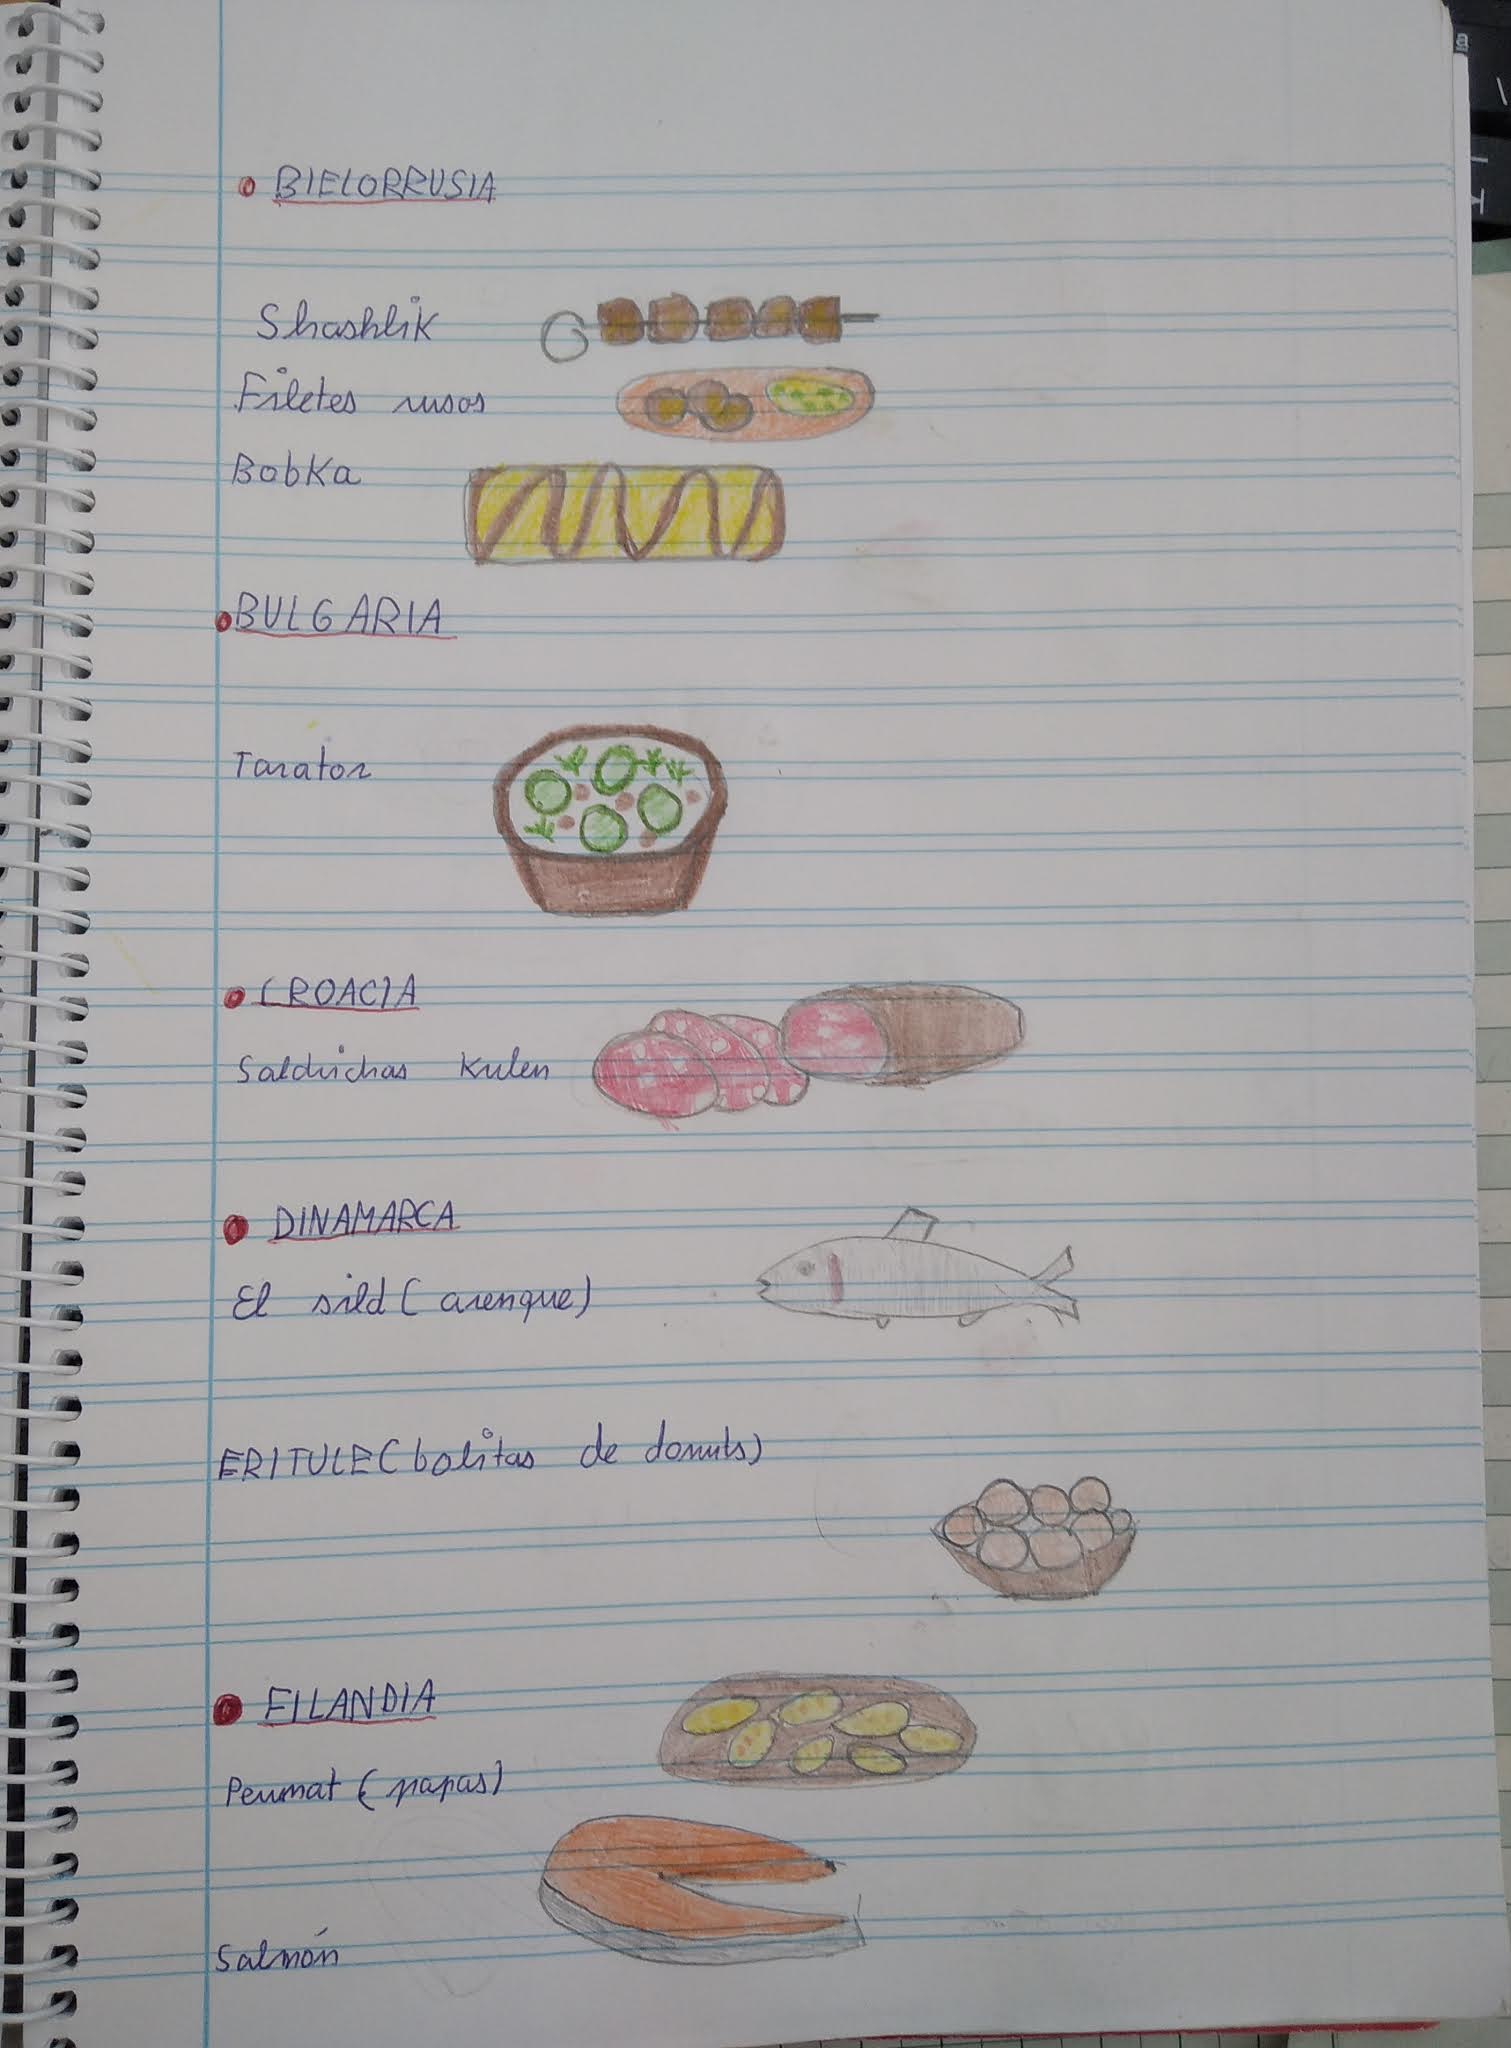 BIELORRUSIA
Shashlik
Filetes rusos
Bobka
BULGARIA
Tarator
CROACIA
Salchichas Kulen
DINAMARCA
El sild (arenque)
FRITULE (bolitas de donuts)
FILANDIA
Perumat (papas)
Salmón
a